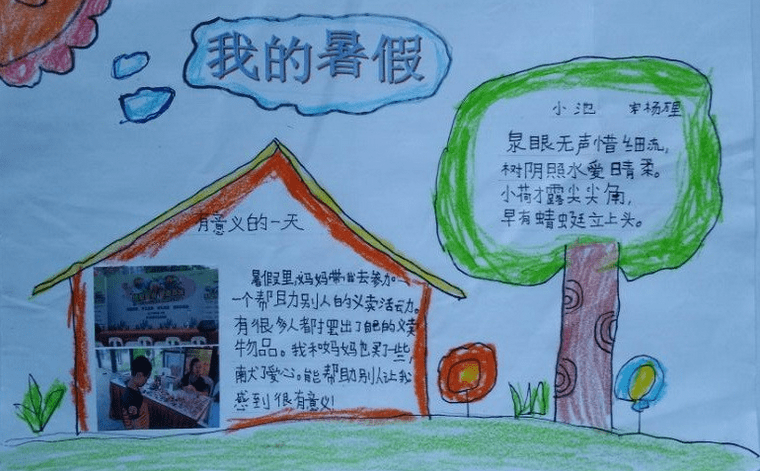 我的暑假
小池 宋杨理
泉眼无声惜细流，
树阴照水爱日晴柔。
小荷才露尖尖角，
早有蜻蜓立上头。
有意义的一天
暑假里,妈妈带我去参加
一个帮助别人的义卖活动。
有很多人都摆出了自己的义卖
物品。我和妈妈也买了一些,
献了爱心。能帮助别人让我
感到很有意义!